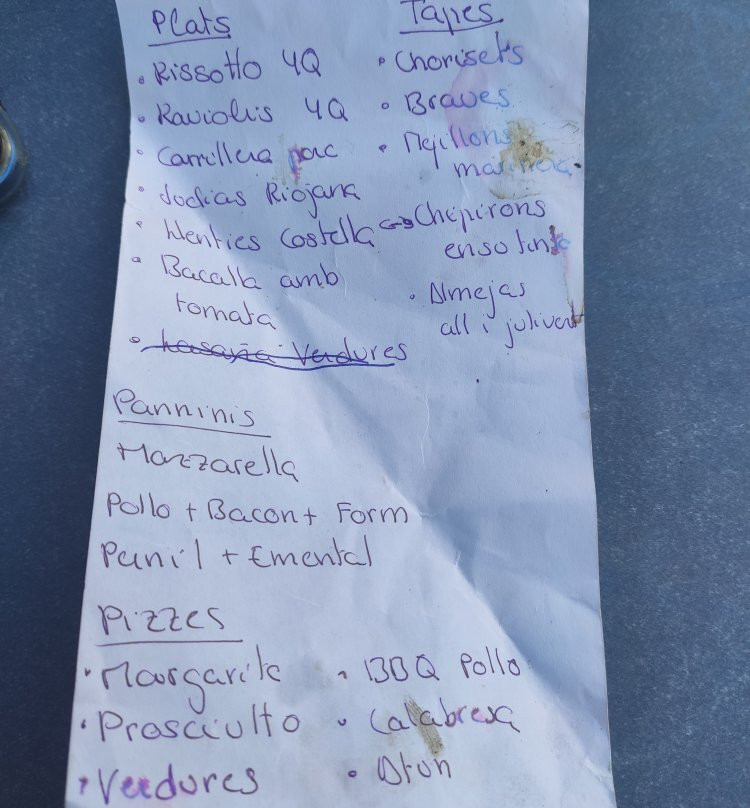 Plats
• Rissotto 4Q
• Raviolis 4Q
• Carrillera porc
• Jodias Riojana
• Llenties Costella
• Bacalla amb
tomata
• Lasaña Verdures
Tapes
• Chorisets
• Braves
• Mejillons
marinera
Chipirons
en so tinta
• Almejas
all i julivert
Panninis
Mozzarella
Pollo + Bacon + Form
Pernil + Emental
Pizzes
• Margarita
• Prosciutto
• Verdures
• BBQ Pollo
• Calabresa
• Atun